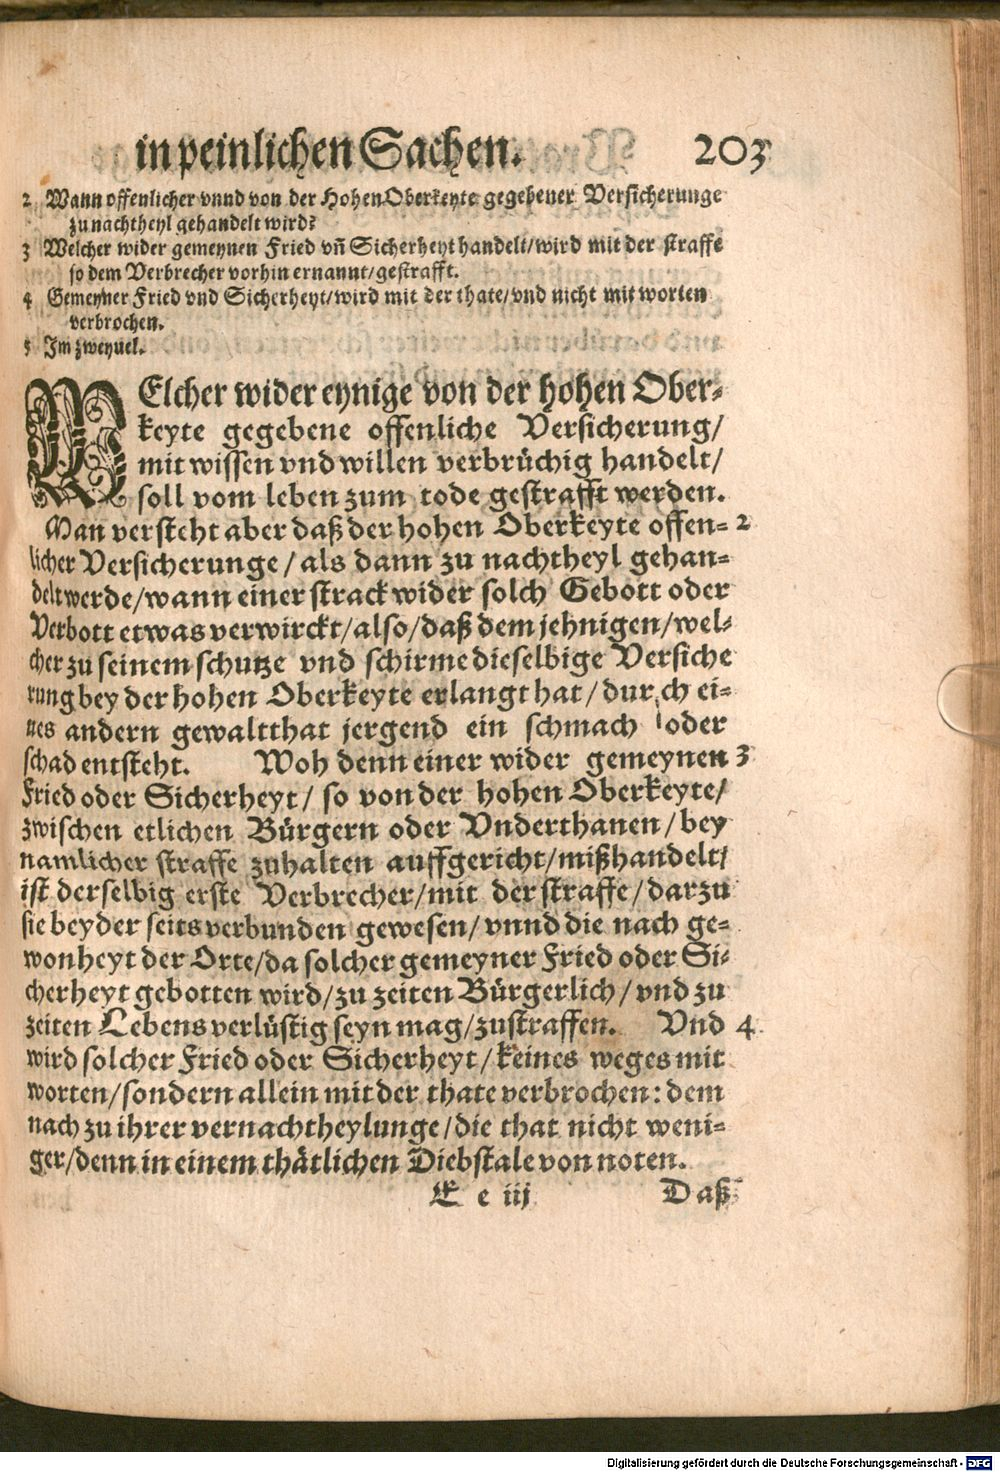 in peinlichen Sachen. 203
2 Wann offenlicher vnnd von der Hohen Oberkeyte gegebener Versicherunge
zu nachtheyl gehandelt wird?
3 Welcher wider gemeynen Fried vñ Sicherheyt handelt/wird mit der straffe
so dem Verbrecher vorhin ernannt/gestrafft.
4 Gemeyner Fried vnd Sicherheyt/wird mit der thate/vnd nicht mit worten
verbrochen.
5 Im zweyuel.
WElcher wider eynige von der hohen Ober-
keyte gegebene offenliche Versicherung/
mit wissen vnd willen verbrüchig handelt/
soll vom leben zum tode gestrafft werden.
Man versteht aber daß der hohen Oberkeyte offen- 2
licher Versicherunge/als dann zu nachtheyl gehan-
delt werde/wann einer strack wider solch Gebott oder
Verbott etwas verwirckt/also/daß dem jehnigen/wel-
cher zu seinem schutze vnd schirme dieselbige Versiche
rung bey der hohen Oberkeyte erlangt hat/durch ei-
nes andern gewaltthat jergend ein schmach oder
schad entsteht. Woh denn einer wider gemeynen 3
Fried oder Sicherheyt/so von der hohen Oberkeyte/
zwischen etlichen Bürgern oder Vnderthanen/bey
namlicher straffe zuhalten auffgericht/mißhandelt/
ist derselbig erste Verbrecher/mit der straffe/darzu
sie beyder seits verbunden gewesen/vnnd die nach ge-
wonheyt der Orte/da solcher gemeyner Fried oder Si-
cherheyt gebotten wird/zu zeiten Bürgerlich/vnd zu
zeiten Lebens verlüstig seyn mag/zustraffen. Vnd 4
wird solcher Fried oder Sicherheyt/keines weges mit
worten/sondern allein mit der thate verbrochen: dem
nach zu ihrer vernachtheylunge/die that nicht weni-
ger/denn in einem thätlichen Diebstale von noten.
E e iij Daß
Digitalisierung gefördert durch die Deutsche Forschungsgemeinschaft - DFG